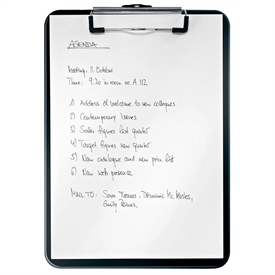 AGENDA
Meeting: 11. October
Time: 9.30 in room no. A 112
1) Address of welcome to new collegues
2) Contemporary issues
3) Sales figures last quarter
4) Target figures new quarter
5) New catalogue and new price list
6) New web presence
MAIL TO: Sara Thomas, Desmonic Mc
Emily